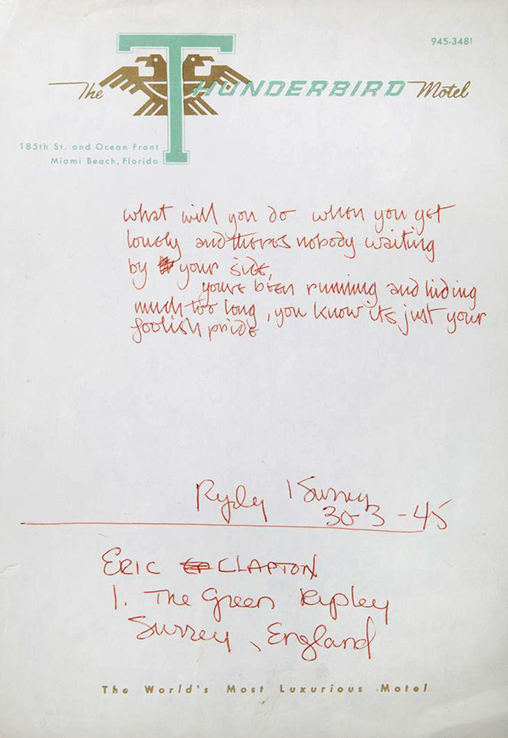 945-3481
The THUNDERBIRD Motel
185th St. and Ocean Front
Miami Beach, Florida
what will you do when you get
lonely and theres nobody waiting
by your side,
youre been running and hiding
much too long, you know its just your
foolish pride
Ryply Surrey
30-3-45
ERIC CLAPTON
1. The Green Ripley
Surrey, England
The World's Most Luxurious Motel